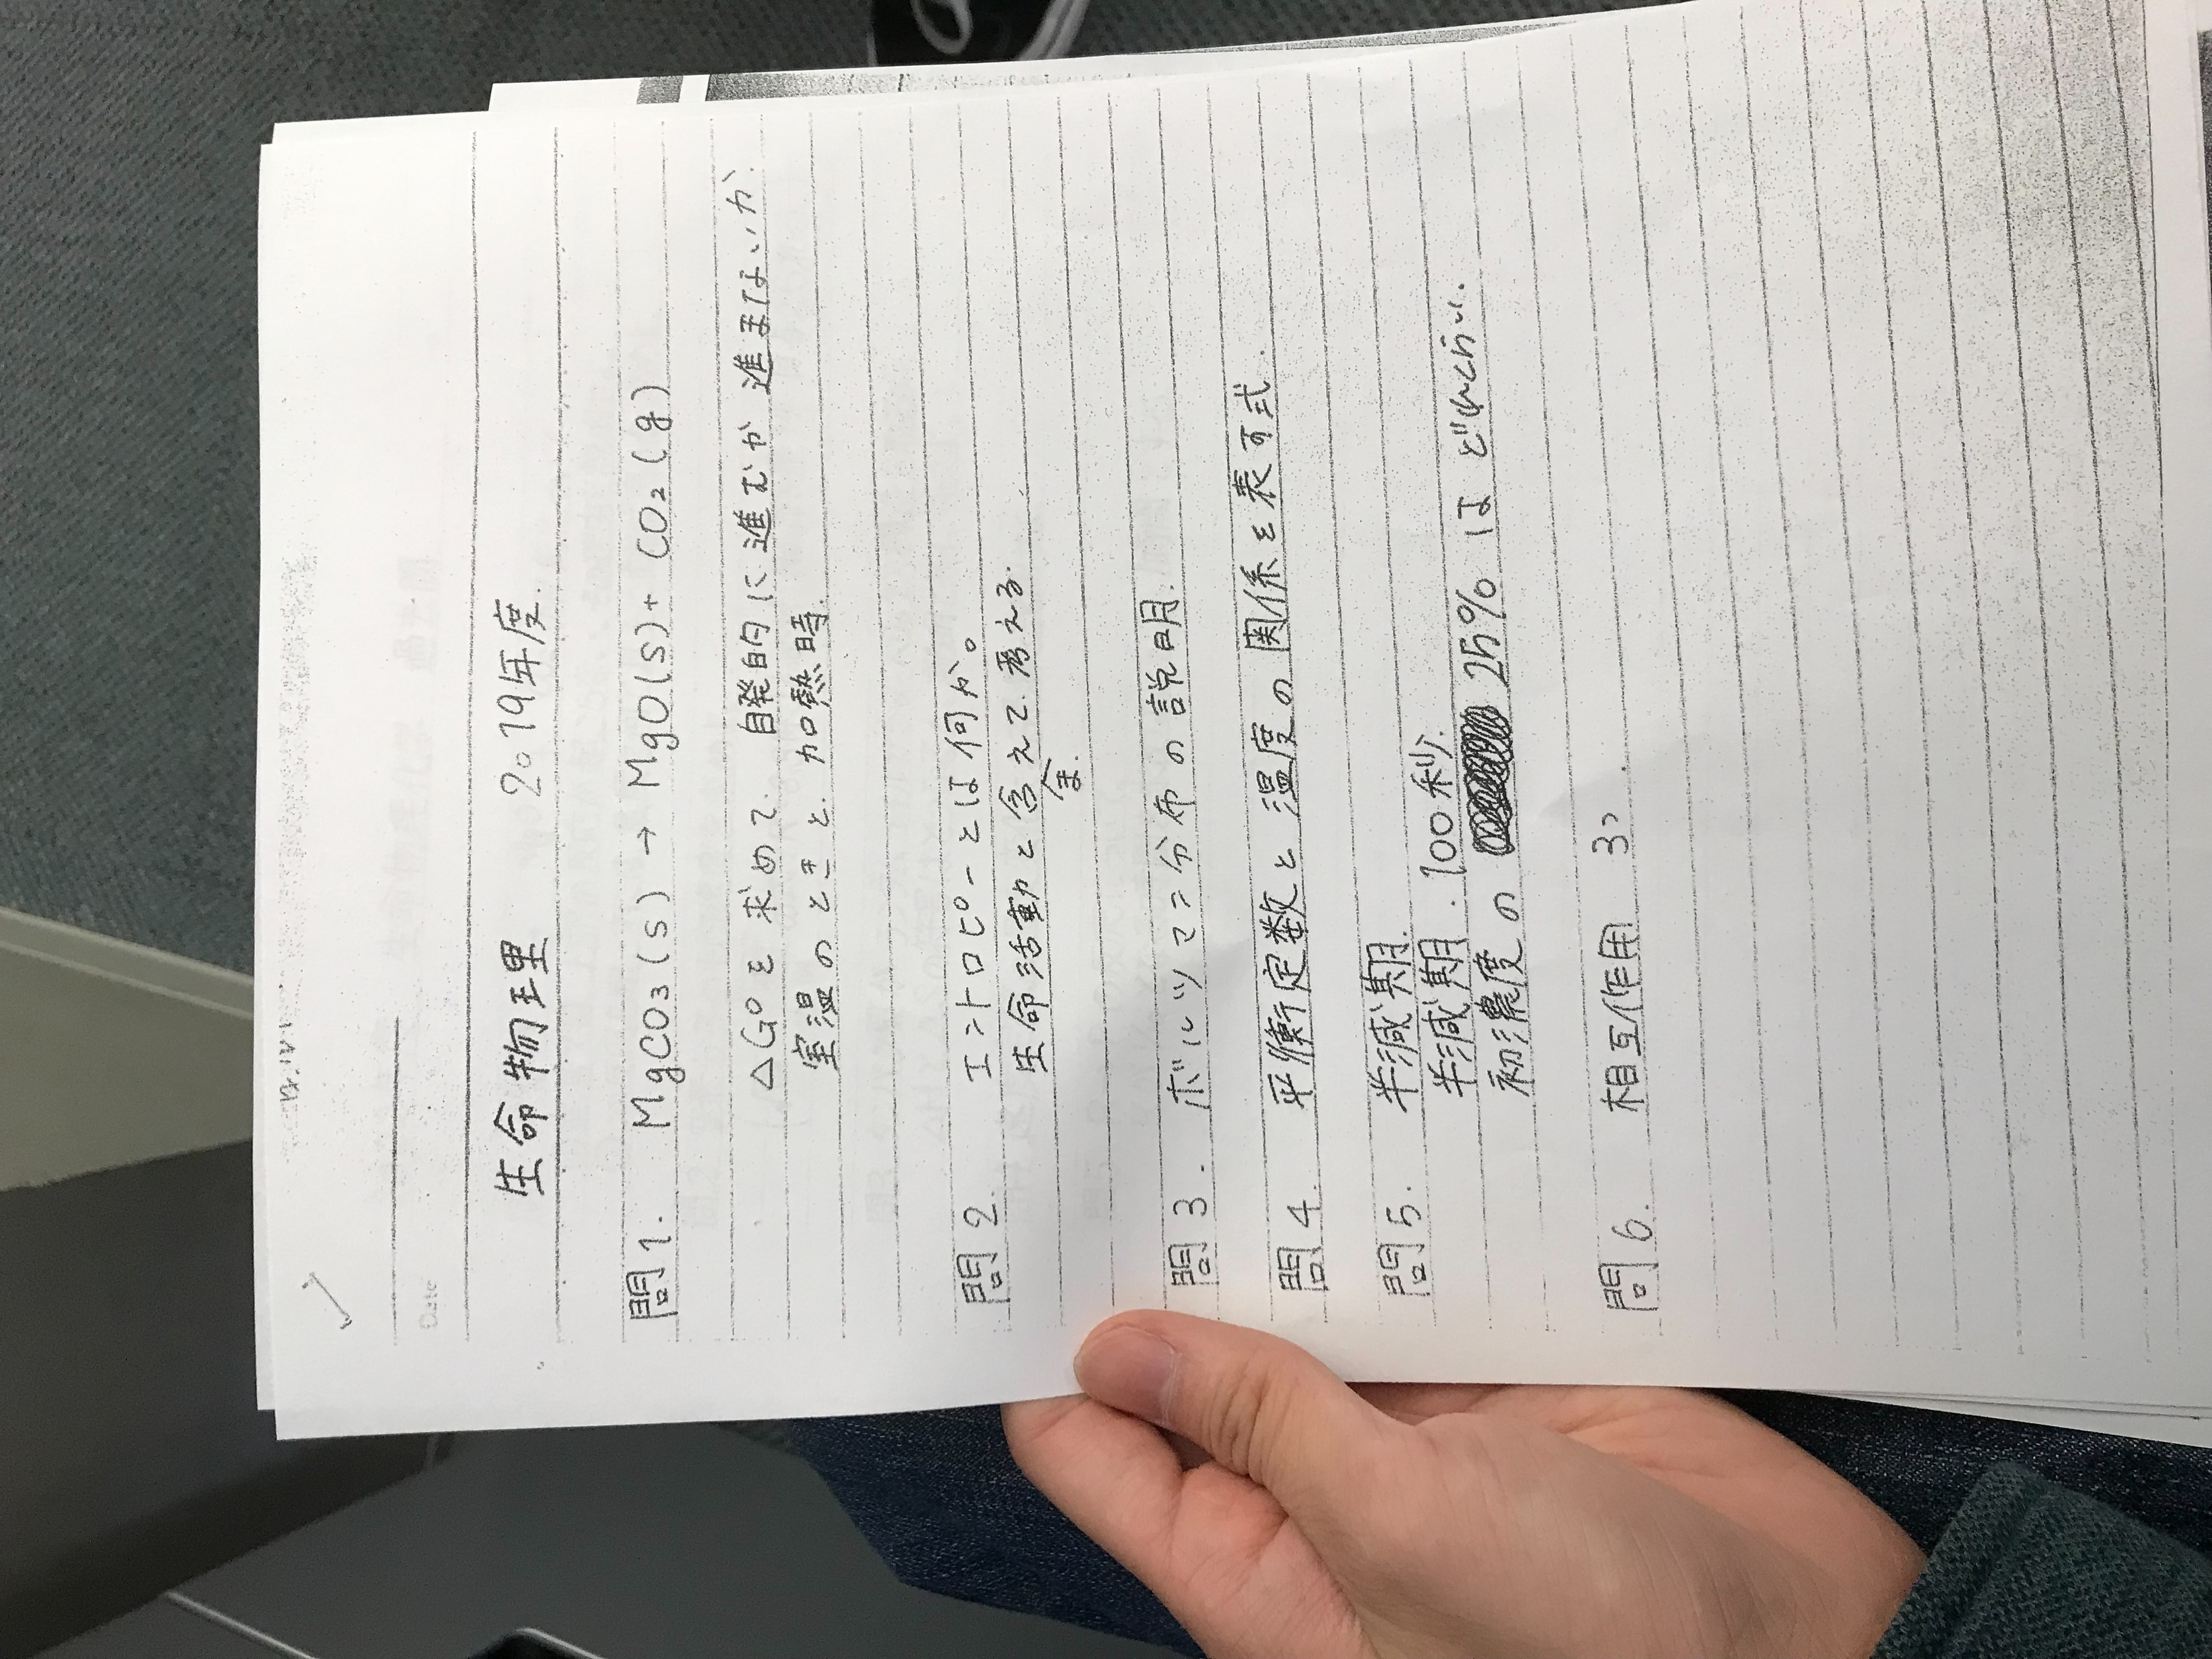 Date
生命物理 2019年度.
問1. MgCO₃(s) → MgO(s)+ CO₂(g)
△G°を求めて. 自発的に進むか進まないか.
室温のときと. 加熱時.
問2. エントロピーとは何か。
生命活動と含えて.考える.
問3. ボルツマン分布の説明.
問4. 平衡定数と温度の関係を表す式.
問5. 半減期.
半減期. 100秒.
初濃度の 25%はどれくらい.
問6. 相互作用 3つ.